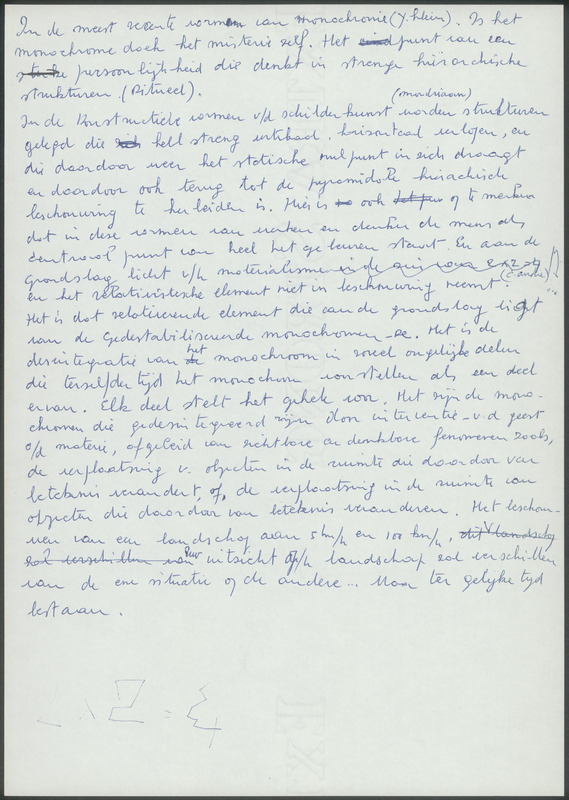 In de meest recente vormen van monochromie (Y. Klein). Is het
monochrome doek het misterie zelf. Het eindpunt van een
sterke persoonlijkheid die denkt in strenge hiërarchische
strukturen. (Ritueel).
(mondriaan)
In de Konstructieve vormen v/d schilderkunst worden strukturen
gelegd die zich heel streng vertikaal. horizontaal verlopen, en
die daardoor weer het statische nulpunt in zich draagt
en daardoor ook terug tot de pyramidale hierachisch
beschouwing te herleiden is. Hier is ook of te merken
dat in deze vormen van werken en denken de mens als
centraal punt van heel het gebeuren staat. En aan de
grondslag liekt v/h materialisme
(C. andre)
en het relativistische element niet in beschouwing neemt.
Het is dat relativerende element die aan de grondslag ligt
van de Gedestabiliseerde monochromen. Het is de
desintegratie van het monochroom in zoveel ongelijke delen
die terselfdertijd het monochrom voorstellen als een deel
ervan. Elk deel stelt het geheel voor. Het zijn de mono-
chromen die gedesintegreerd zijn door interventie v.d geest
o/d materie, afgeleid van zichtbare en denkbare fenomenen zoals,
de verplaatsing v. objecten in de ruimte die daardoor van
betekenis verandert, of, de verplaatsing in de ruimte van
objecten die daardoor van betekenis veranderen. Het beschou-
wen van een landschap aan 5km/h en 100 km/h, dit landschap
zal verschillen van uw uitzicht op/h landschap zal verschillen
van de ene situatie of de andere... Maar ter gelijke tijd
bestaan.